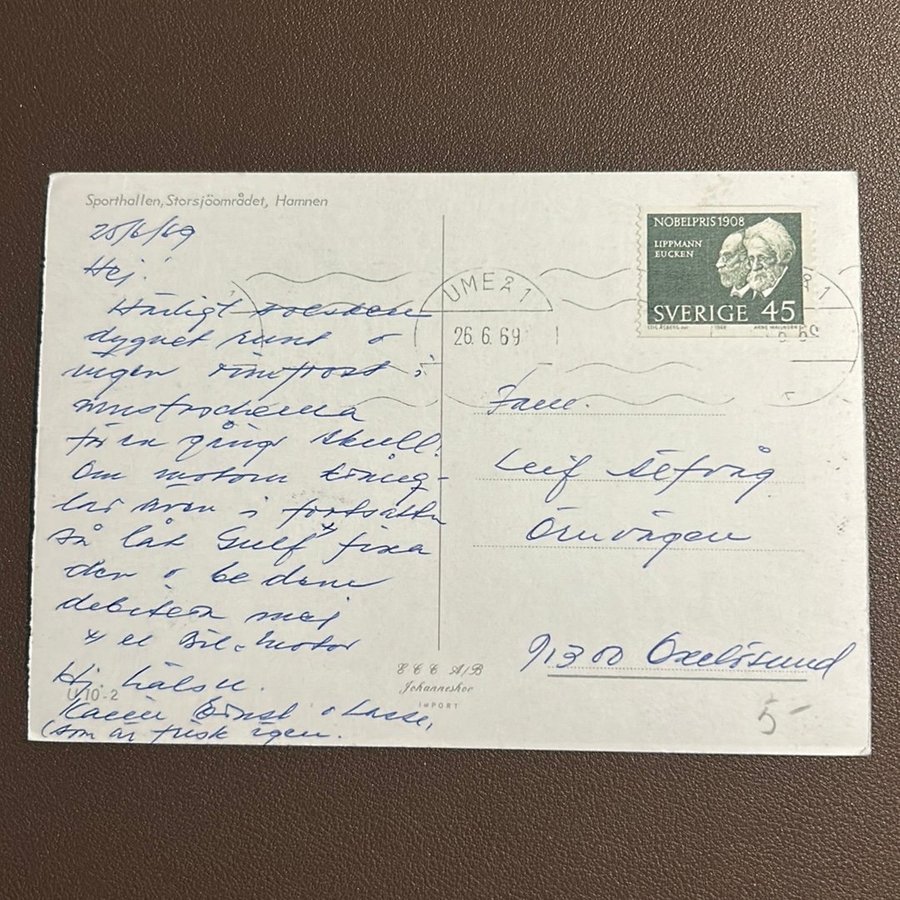 Sporthallen, Storsjöområdet, Hamnen
25/6/69
Hej!
Härligt solsken
dygnet runt o
ingen rimfrost i
mustascherna
för en gångs skull.
Om motorn
även i fortsättn
så låt Gulf x fixa
den o be dem
debitera mej
x el Bil o Motor
Hj. hälsn.
Karin Ernst o Lasse,
(som är frisk igen.
U 10-2
E C C A/B
Johanneshov
IMPORT
NOBELPRIS 1908
LIPPMANN
EUCKEN
SVERIGE 45
1968
UMEÅ 1
26.6.69
Fam.
Leif
Örnvägen
91300 Oxelösund
5-